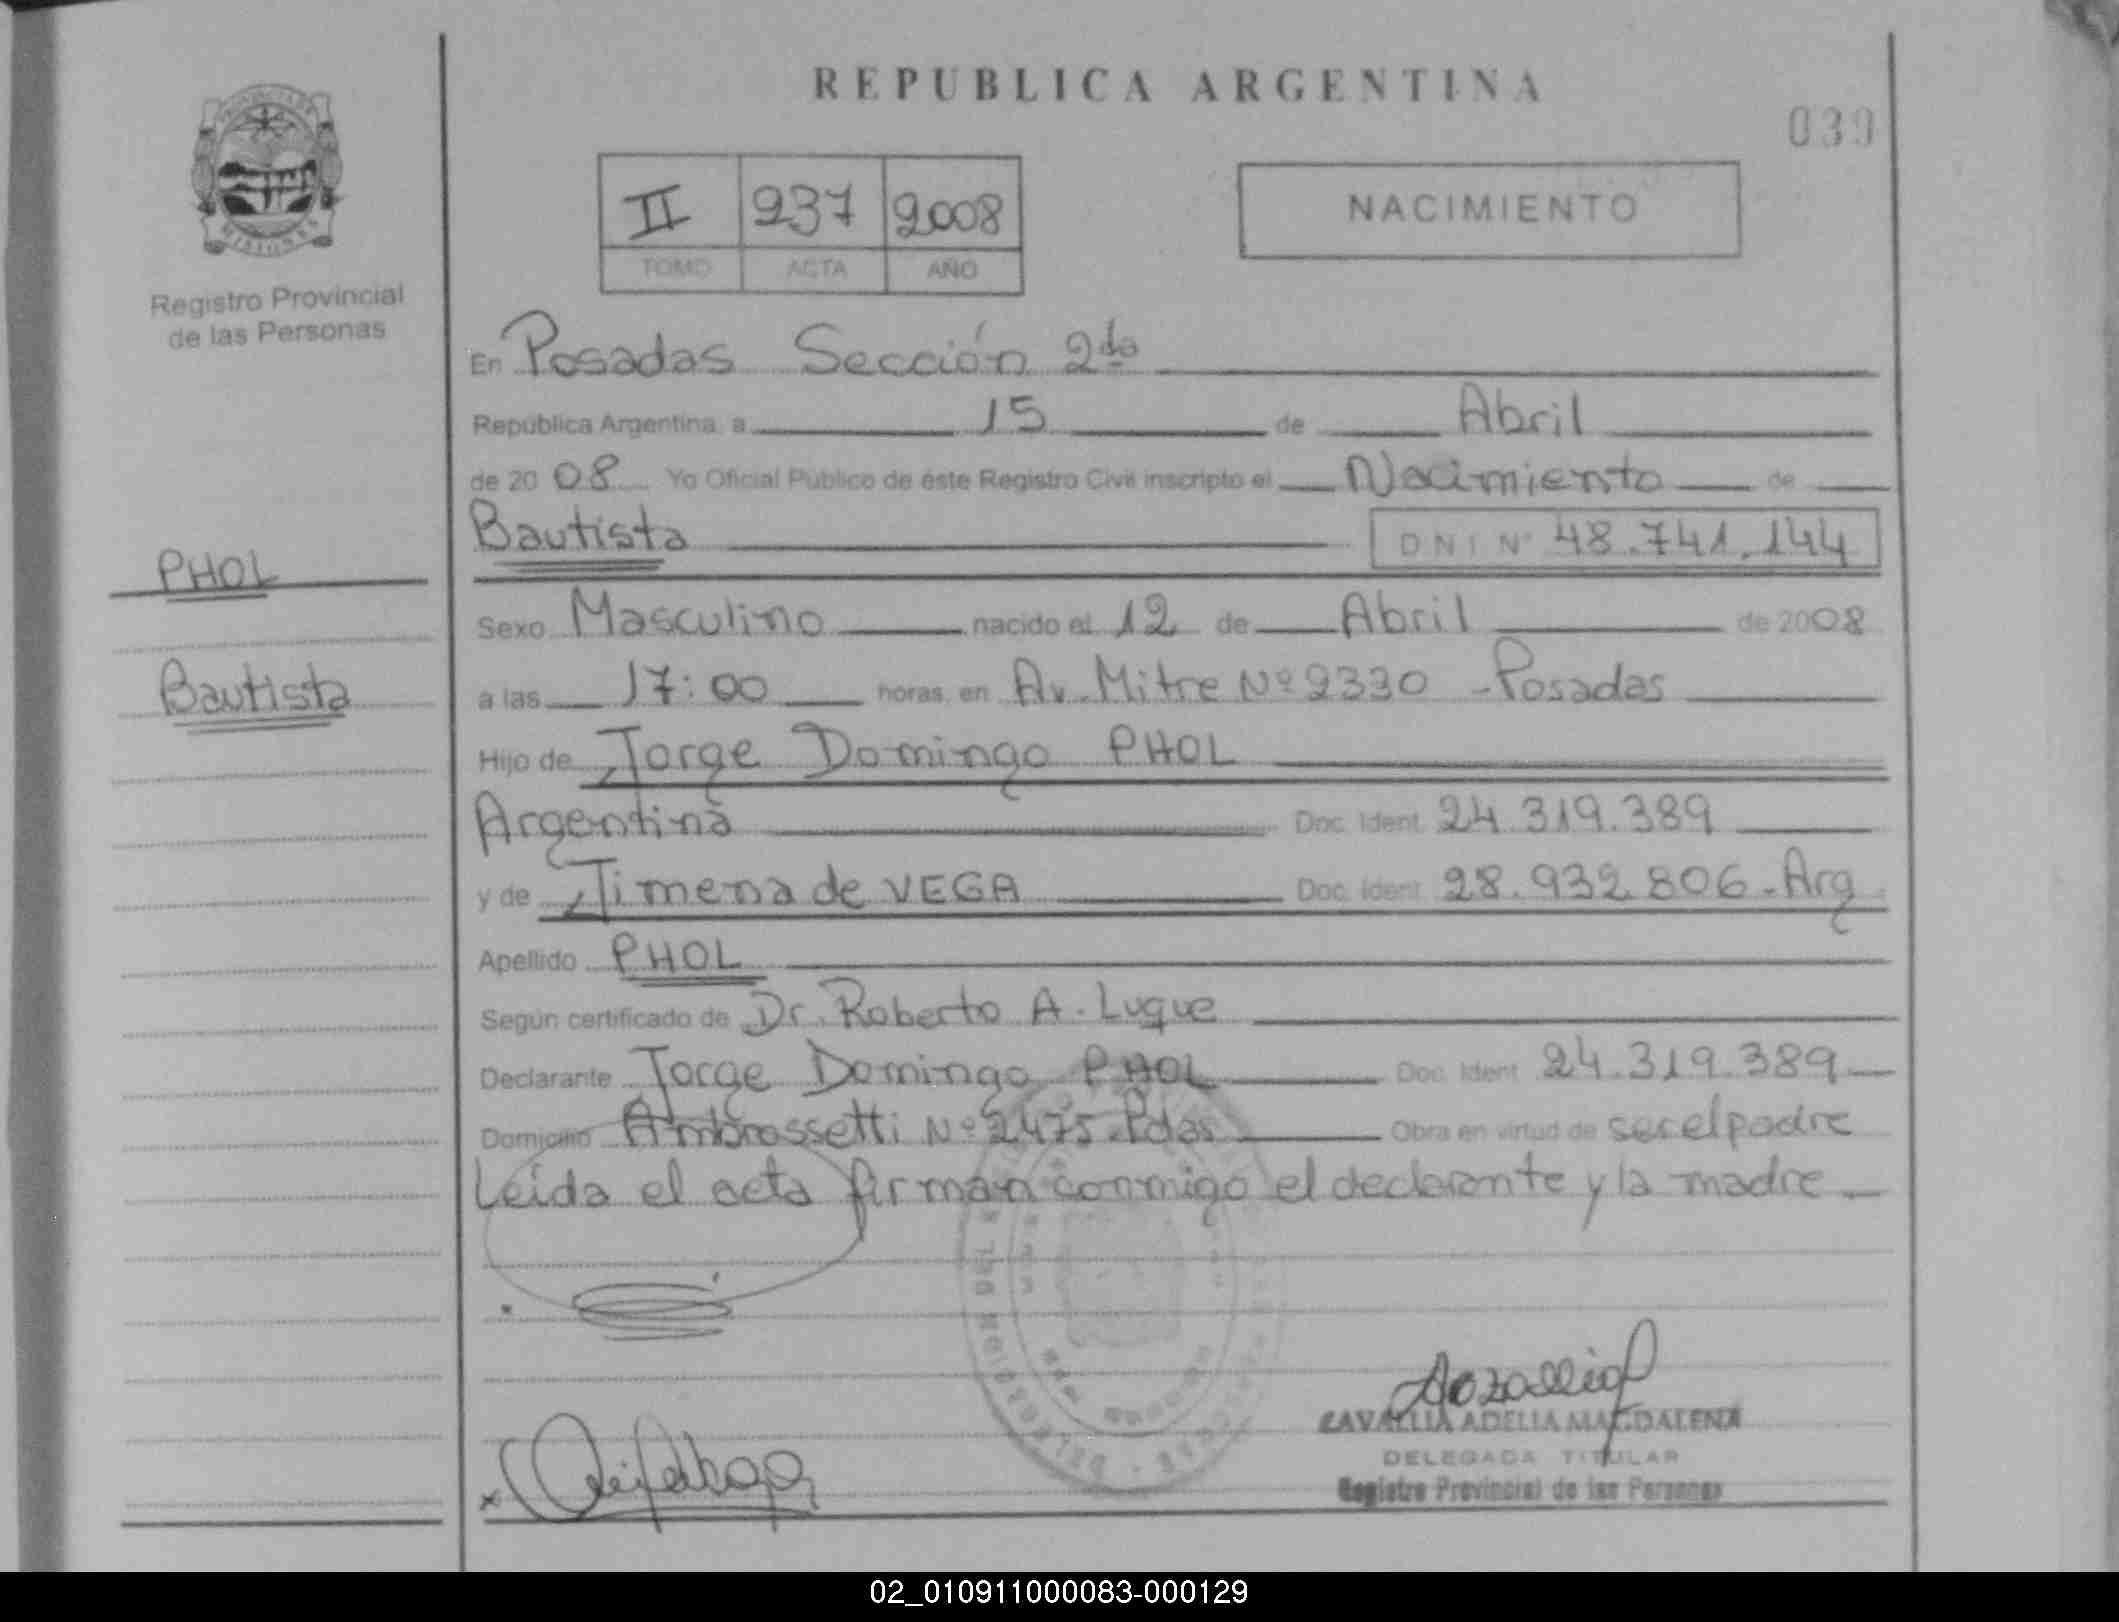 REPUBLICA ARGENTINA
039
II 237 2008
TOMO ACTA AÑO
NACIMIENTO
Registro Provincial
de las Personas
PHOL
Bautista
En Posadas Sección 2da
República Argentina, a 15 de Abril
de 2008 Yo Oficial Público de éste Registro Civil inscripto el Nacimiento de
Bautista DNI Nº 48.741.144
Sexo Masculino nacido el 12 de Abril de 2008
a las 17:00 horas, en Av. Mitre Nº 2330 - Posadas
Hijo de Jorge Domingo PHOL
Argentina Doc. Ident. 24.319.389
y de Jimena de VEGA Doc. Ident. 28.932.806 - Arg
Apellido PHOL
Según certificado de Dr. Roberto A. Luque
Declarante Jorge Domingo PHOL Doc. Ident. 24.319.389
Domicilio Ambrossetti Nº 2475 - Pdas Obra en virtud de ser el padre
Leída el acta firman conmigo el declarante y la madre
CAVALLIA ADELIA MAGDALENA
DELEGADA TITULAR
Registro Provincial de las Personas
02_010911000083-000129